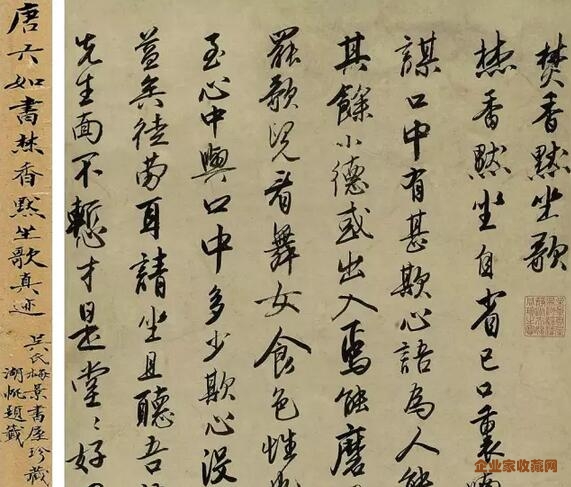 焚香黙坐歌
焚香黙坐自省己口裏喃
謀口中有甚欺心語為人能
其餘小德或出入焉能磨
罷歌兒看舞女食色性
至心中與口中多少欺心沒
益矣徒勞耳請坐且聽吾語
先生面不慙才是堂〻好
唐六如書焚香黙坐歌真迹
吳氏梅景書屋珍藏
湖帆題籤
企业家收藏网